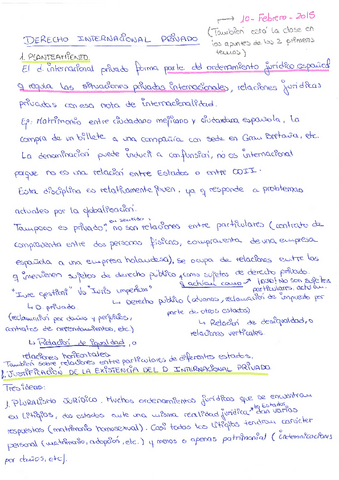 10 - Febrero - 2015
DERECHO INTERNACIONAL PRIVADO
(También está la clase en
los apuntes de los 2 primeros
temas)
1. PLANTEAMIENTO
El d. internacional privado forma parte del ordenamiento jurídico español
y regula las situaciones privadas internacionales, relaciones jurídicas
privadas con esa nota de internacionalidad.
Ej. Matrimonio entre ciudadano mejicano y ciudadana española, la
compra de un billete a una compañía con sede en Gran Bretaña, etc.
La denominación puede inducir a confusión, no es internacional
porque no es una relación entre Estados o entre OOII.
Esta disciplina es relativamente joven, ya q responde a problemas
actuales por la globalización.
Tampoco es "privado", no son relaciones entre particulares (contrato de
compraventa entre dos personas físicas, compraventa de una empresa
española a una empresa holandesa), se ocupa de relaciones entre las
q intervienen sujetos de derecho público como sujetos de derecho privado.
q actúan como
"Iure gestioni" vs "iuris imperium"
↳ D privado
↳ Derecho público (aduanas, reclamación de impuesto por
parte de otros estados)
(reclamación por daños y perjuicios,
contratos de arrendamientos, etc.)
↳ Relación de desigualdad, o
relaciones verticales
↳ Relación de igualdad, o
relaciones horizontales
También sobre relaciones entre particulares de diferentes estados.
2. JUSTIFICACIÓN DE LA EXISTENCIA DEL D INTERNACIONAL PRIVADO
Tres ideas:
1. PLURALISMO JURÍDICO. Muchos ordenamientos jurídicos que se encuentran
en litigios, dos estados ante una misma realidad jurídica, los Estados dan varias
respuestas (matrimonio homosexual). Casi todos los litigios tendrán carácter
personal (matrimonio, adopción, etc.) y menos o apenas patrimonial (indemnizaciones
por daños, etc).